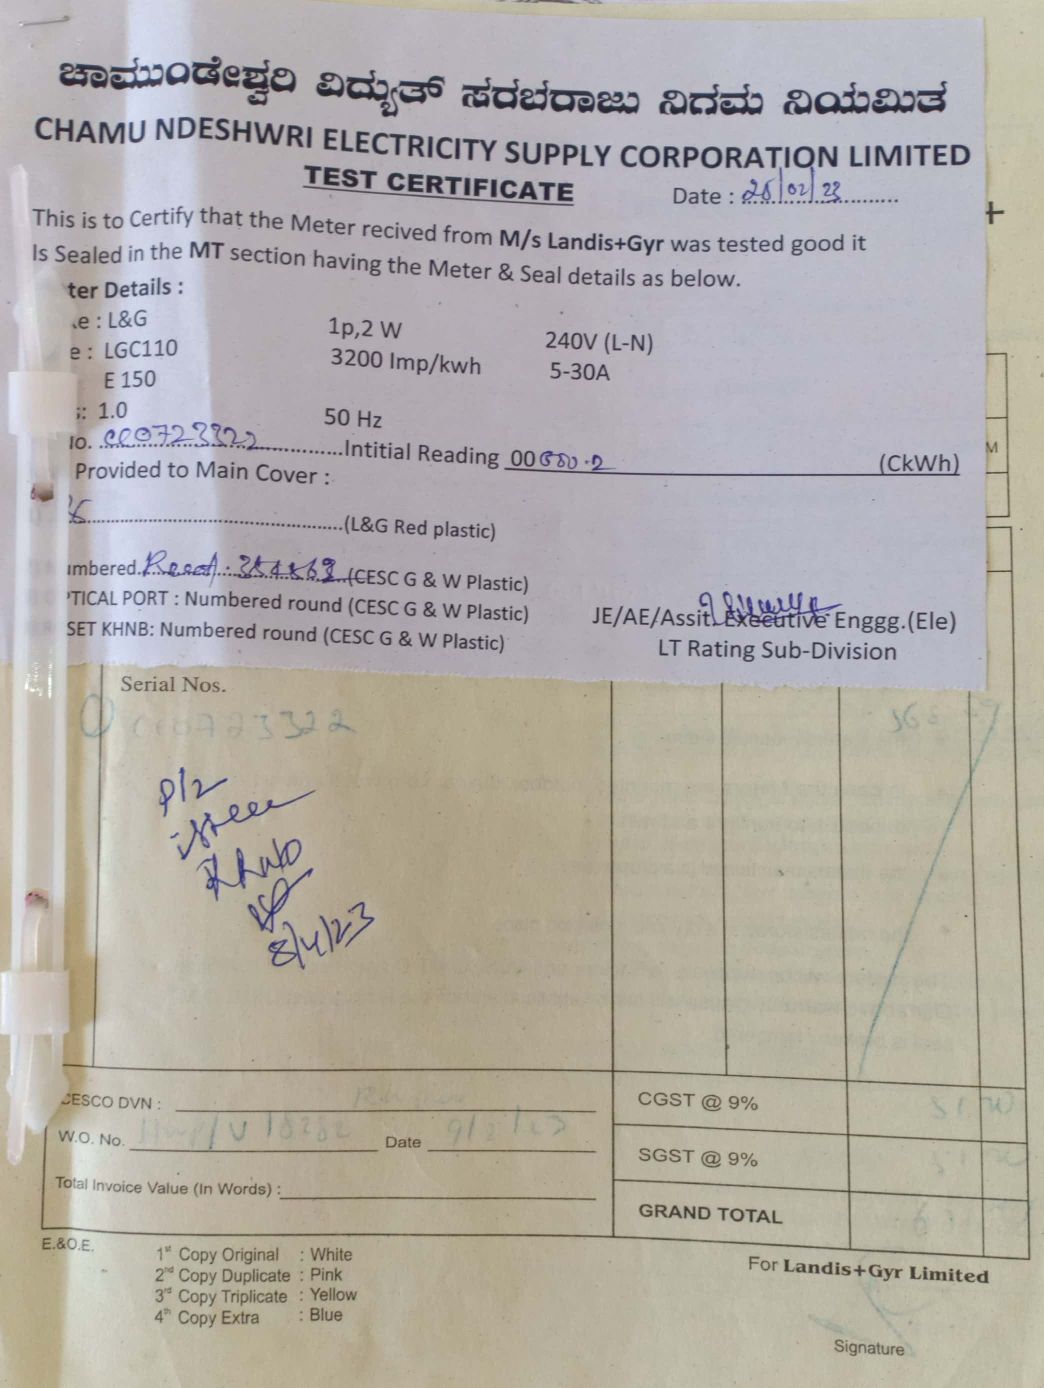 ಚಾಮುಂಡೇಶ್ವರಿ ವಿದ್ಯುತ್ ಸರಬರಾಜು ನಿಗಮ ನಿಯಮಿತ
CHAMU NDESHWRI ELECTRICITY SUPPLY CORPORATION LIMITED
TEST CERTIFICATE
Date : 28/02/23
This is to Certify that the Meter recived from M/s Landis+Gyr was tested good it
Is Sealed in the MT section having the Meter & Seal details as below.
ter Details :
e : L&G 1p,2 W 240V (L-N)
e : LGC110 3200 Imp/kwh 5-30A
E 150
s: 1.0 50 Hz
No. 0723322 Intitial Reading 00 (CkWh)
Provided to Main Cover :
(L&G Red plastic)
umbered. (CESC G & W Plastic)
PTICAL PORT : Numbered round (CESC G & W Plastic)
SET KHNB: Numbered round (CESC G & W Plastic)
JE/AE/Assit. Executive Enggg.(Ele)
LT Rating Sub-Division
M
Serial Nos.
1 0723322
P/2
8/4/23
CESCO DVN :
W.O. No. 18282 Date 9/2/23
Total Invoice Value (In Words) :
CGST @ 9%
SGST @ 9%
GRAND TOTAL
E.&O.E.
1st Copy Original : White
2nd Copy Duplicate : Pink
3rd Copy Triplicate : Yellow
4th Copy Extra : Blue
For Landis+Gyr Limited
Signature